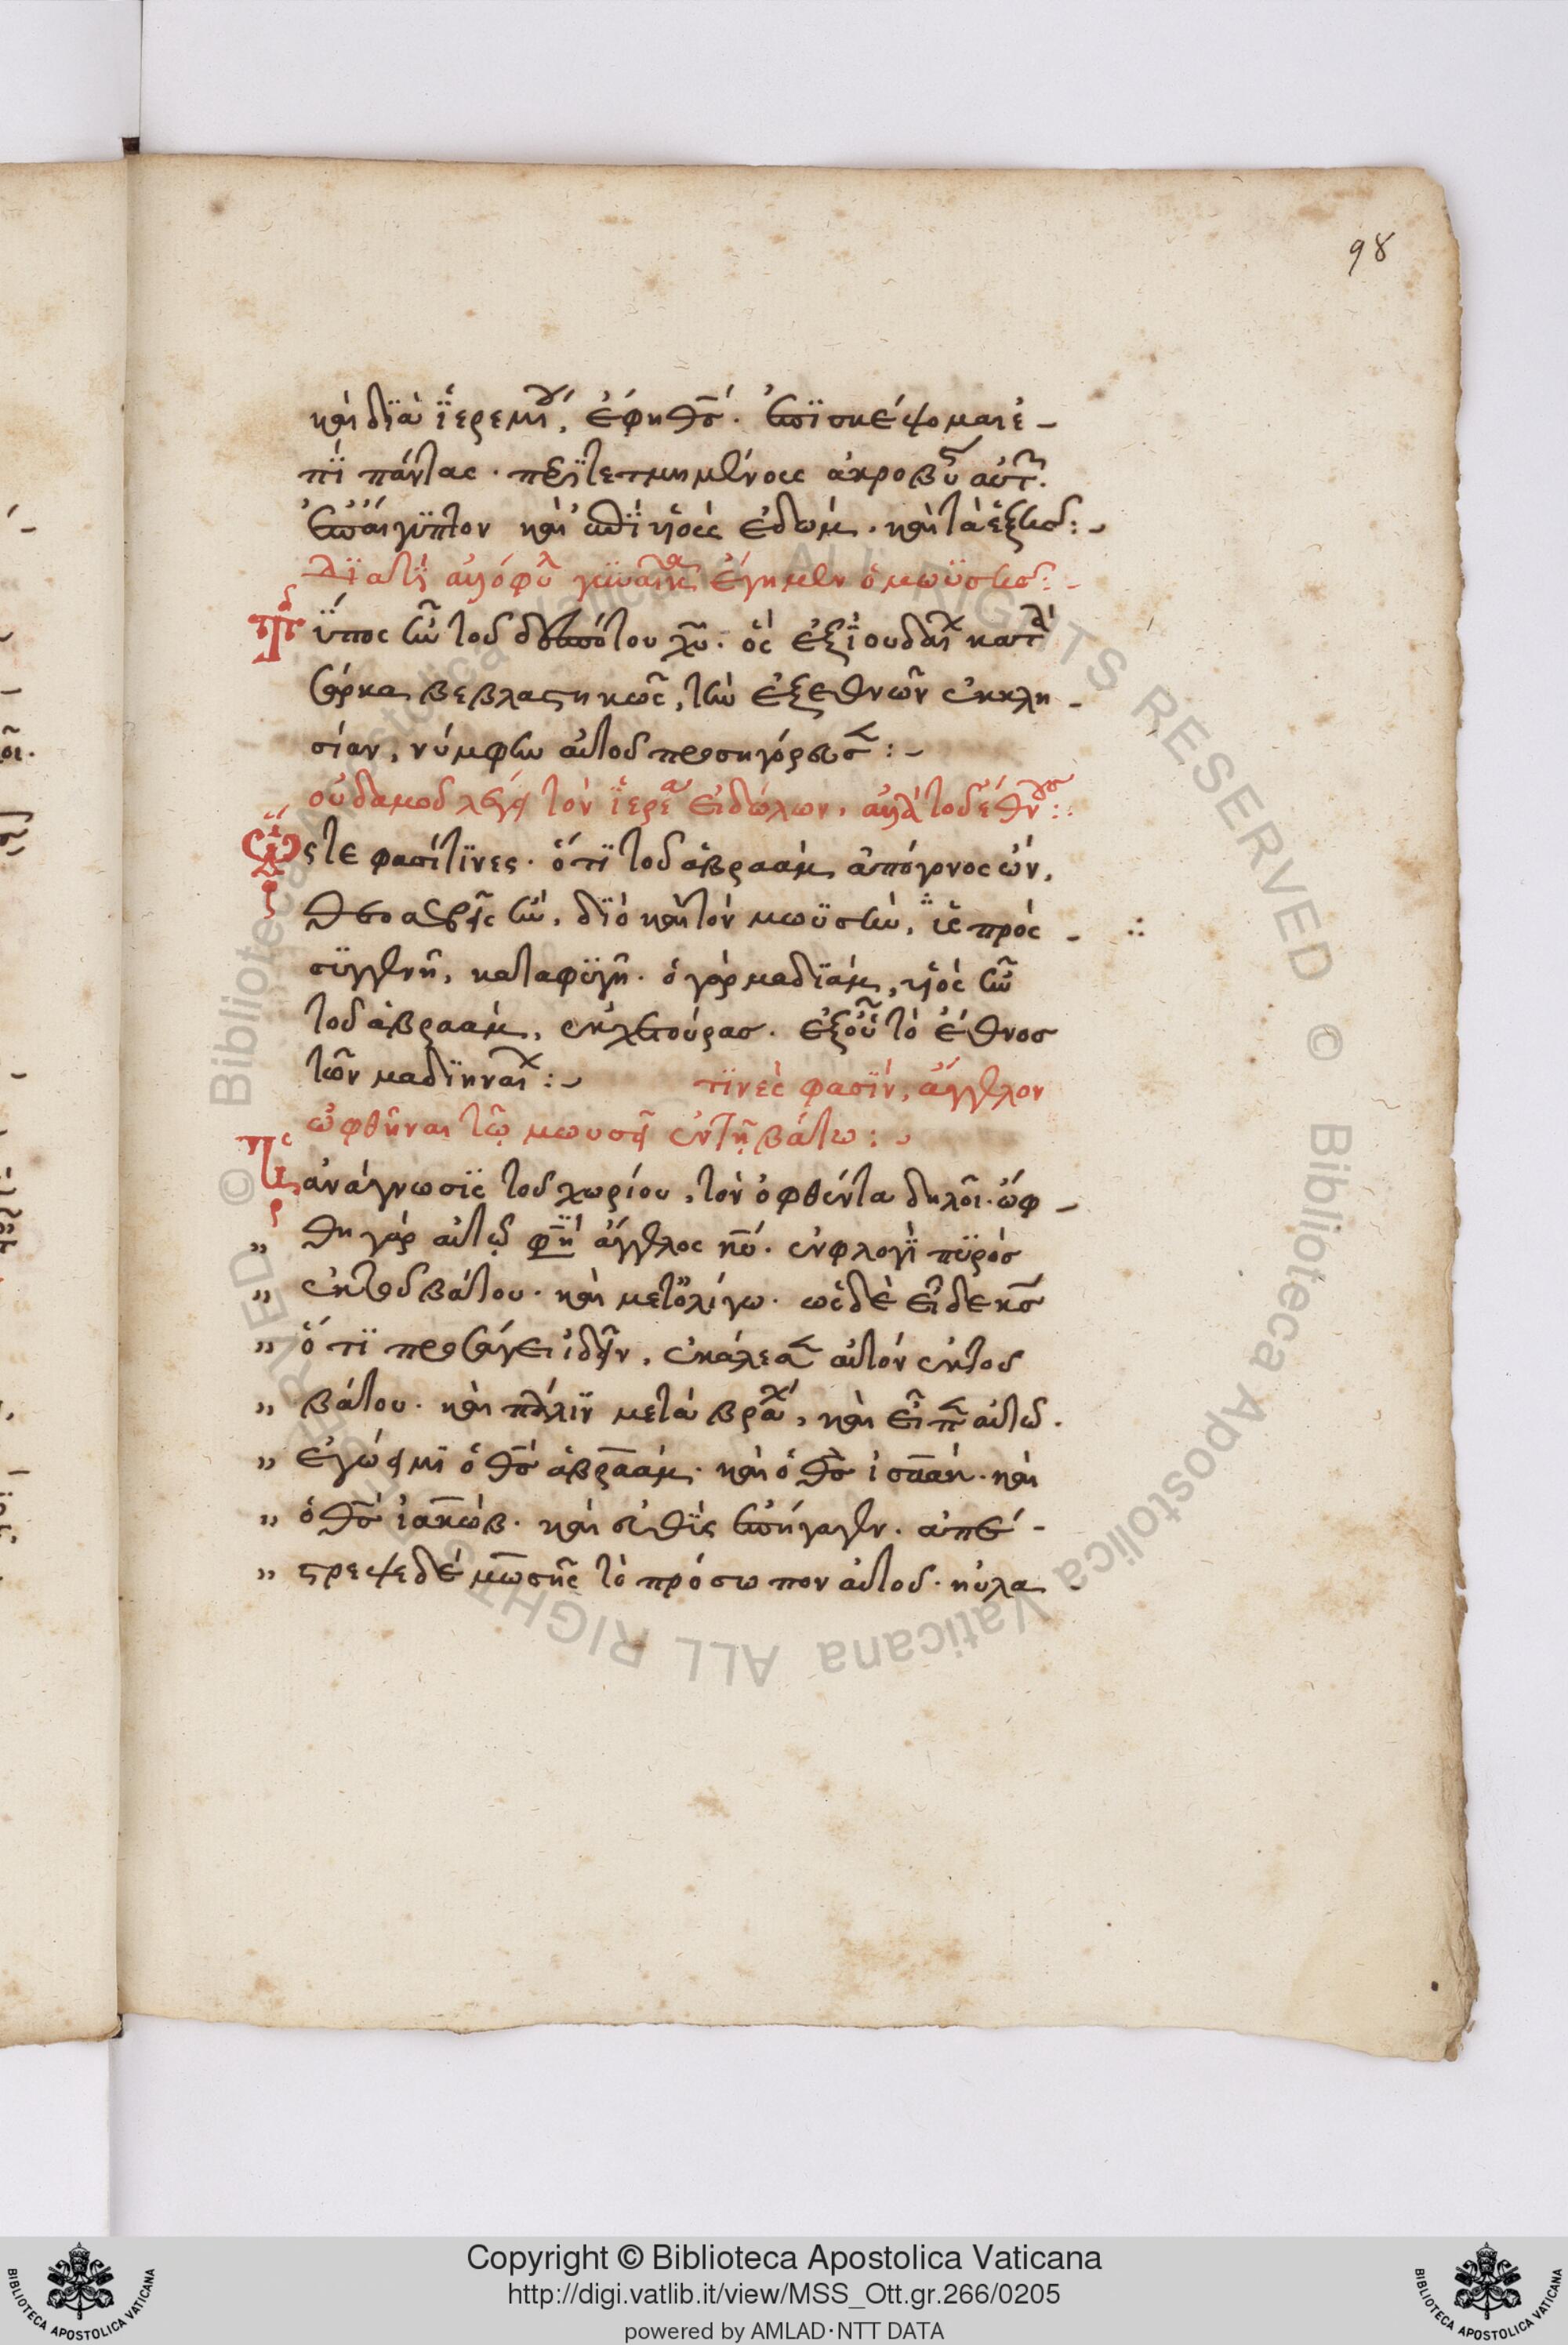 98
καὶ διὰ ἱερεμίου, ἔφη ὁ θς. ἐπισκέψομαι ἐ-
πὶ πάντας. περιτετμημένους ἀκροβυστ αὐτ.
ἐπ' αἴγυπτον καὶ ἐπὶ υἱοὺς ἐδώμ. καὶ τὰ ἑξῆς:-
Διατί ἀλλόφυλ γυναῖκα ἔγημεν ὁ μωϋσῆς:-
Τύπος ἦν τοῦ δεσπότου χυ. ὃς ἐξ ἰουδαί κατὰ
σάρκα βεβλαστηκὼς, τὴν ἐξ ἐθνῶν ἐκκλη-
σίαν, νύμφην αὐτοῦ προσηγόρευσ:-
οὐδαμοῦ λέγει τὸν ἱερέα εἰδώλων, ἀλλὰ τοῦ ἔθνους:
ὥστε φασί τινες. ὅτι τοῦ ἀβραὰμ ἀπόγονος ὤν,
θεοσεβὴς ἦν. διὸ καὶ τὸν μωϋσῆν, ὡς πρὸς -
συγγενῆ, καταφυγῆν. ὁ γὰρ μαδιὰμ, υἱὸς ἦν
τοῦ ἀβραὰμ, ἐκ χετούρας. ἐξ οὗ τὸ ἔθνος
τῶν μαδιηναί:- τινὲς φασὶν, ἄγγελον
ὀφθῆναι τῷ μωυσεῖ ἐν τῇ βάτω:-
ἀνάγνωσις τοῦ χωρίου, τὸν ὀφθέντα δηλοῖ. ὤφ-
" θη γὰρ αὐτῷ φησὶ ἄγγελος κυ. ἐν φλογὶ πυρὸς
" ἐκ τοῦ βάτου. καὶ μετ' ὀλίγω. ὡς δὲ εἶδε κς
" ὅτι προσάγει ἰδεῖν, ἐκάλεσ αὐτὸν ἐκ τοῦ
" βάτου. καὶ πάλιν μετὰ βραχ, καὶ εἶπ αὐτῶ.
" ἐγώ εἰμι ὁ θς ἀβραάμ. καὶ ὁ θς ἰσαάκ. καὶ
" ὁ θς ἰακώβ. καὶ εὐθὺς ἐπήγαγεν. ἀπέ-
" στρεψε δὲ μωσῆς τὸ πρόσωπον αὐτοῦ. ηὐλα
Copyright © Biblioteca Apostolica Vaticana
http://digi.vatlib.it/view/MSS_Ott.gr.266/0205
powered by AMLAD·NTT DATA